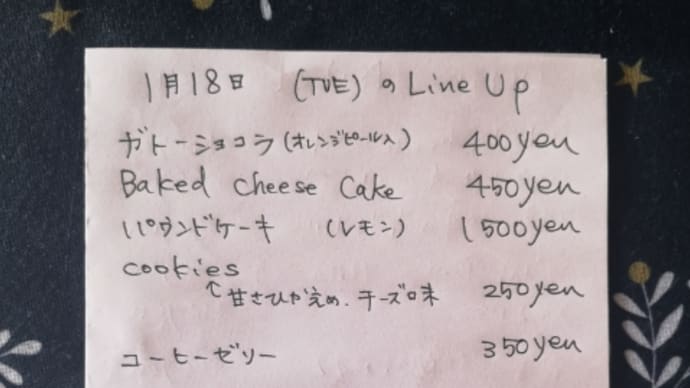 1月18日 (TUE) の Line Up
ガトーショコラ (オレンジピール入) 400yen
Baked cheese Cake 450yen
パウンドケーキ (レモン) 1500yen
cookies
↑甘さひかえめ、チーズ味 250yen
コーヒーゼリー 350yen